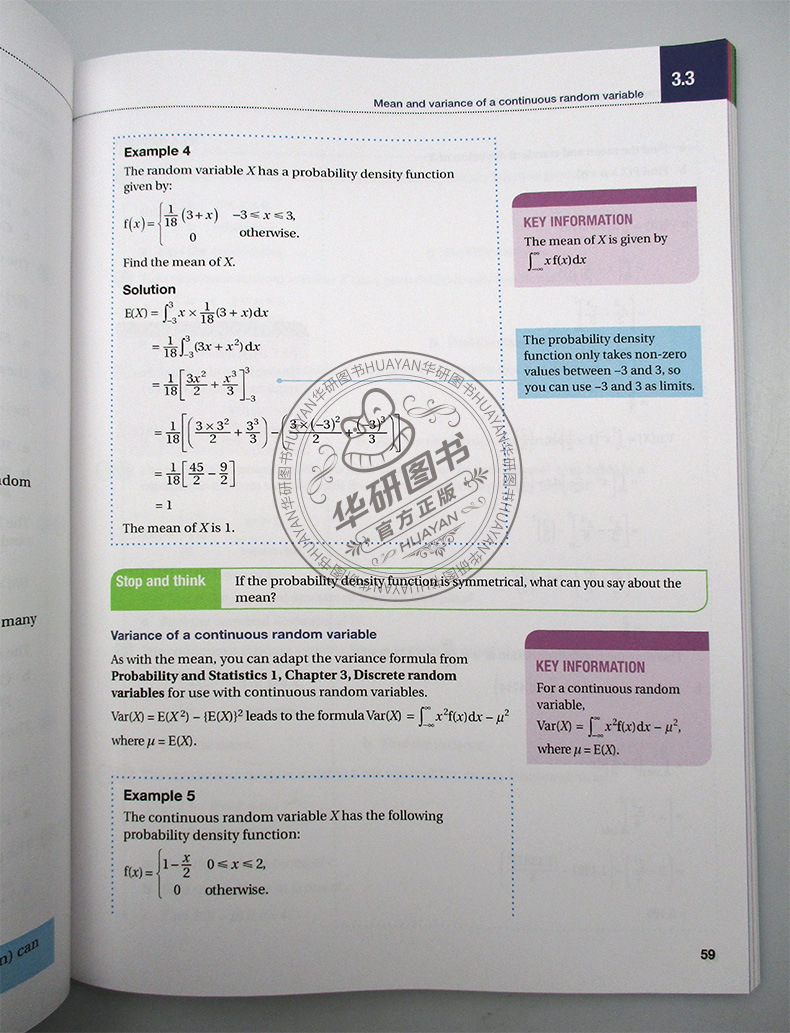 3.3
Mean and variance of a continuous random variable
Example 4
The random variable X has a probability density function
given by:
f(x) = { 1/18 (3 + x)   −3 ⩽ x ⩽ 3,
0   otherwise.
Find the mean of X.
Solution
E(X) = ∫_{−3}^{3} x × 1/18 (3 + x) dx
= 1/18 ∫_{−3}^{3} (3x + x²) dx
= 1/18 [3x²/2 + x³/3]_{−3}^{3}
= 1/18 [(3 × 3²/2 + 3³/3) − (3 × (−3)²/2 + (−3)³/3)]
= 1/18 [45/2 − 9/2]
= 1
The mean of X is 1.
KEY INFORMATION
The mean of X is given by
∫_{−∞}^{∞} x f(x) dx
The probability density
function only takes non-zero
values between −3 and 3, so
you can use −3 and 3 as limits.
华研图书HUAYAN华研图书HUAYAN华研图书HUAYAN华研图书HUAYAN
华研图书
官方正版
HUAYAN
Stop and think
If the probability density function is symmetrical, what can you say about the
mean?
Variance of a continuous random variable
As with the mean, you can adapt the variance formula from
Probability and Statistics 1, Chapter 3, Discrete random
variables for use with continuous random variables.
Var(X) = E(X²) − {E(X)}² leads to the formula Var(X) = ∫_{−∞}^{∞} x² f(x) dx − μ²
where μ = E(X).
KEY INFORMATION
For a continuous random
variable,
Var(X) = ∫_{−∞}^{∞} x² f(x) dx − μ²,
where μ = E(X).
Example 5
The continuous random variable X has the following
probability density function:
f(x) = { 1 − x/2   0 ⩽ x ⩽ 2,
0   otherwise.
59
dom
many
n) can